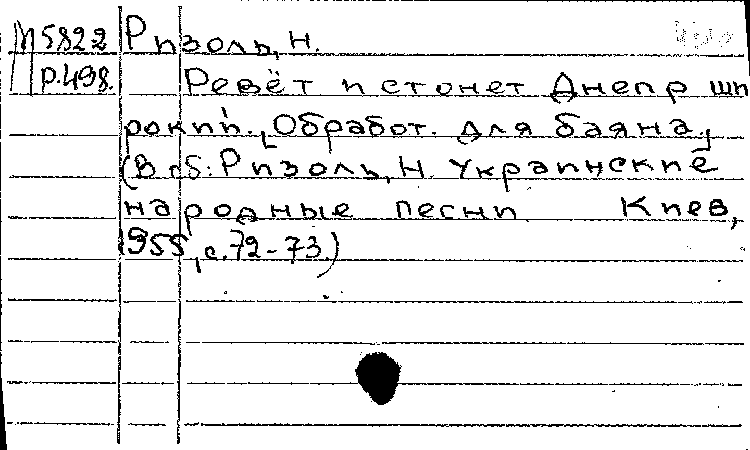 М 5822 Ризоль, Н.
Р.498. Ревёт и стонет Днепр ши
рокий. [Обработ. для баяна]
(В сб: Ризоль, Н. Украинские
народные песни. Киев,
1955, с. 72-73.)